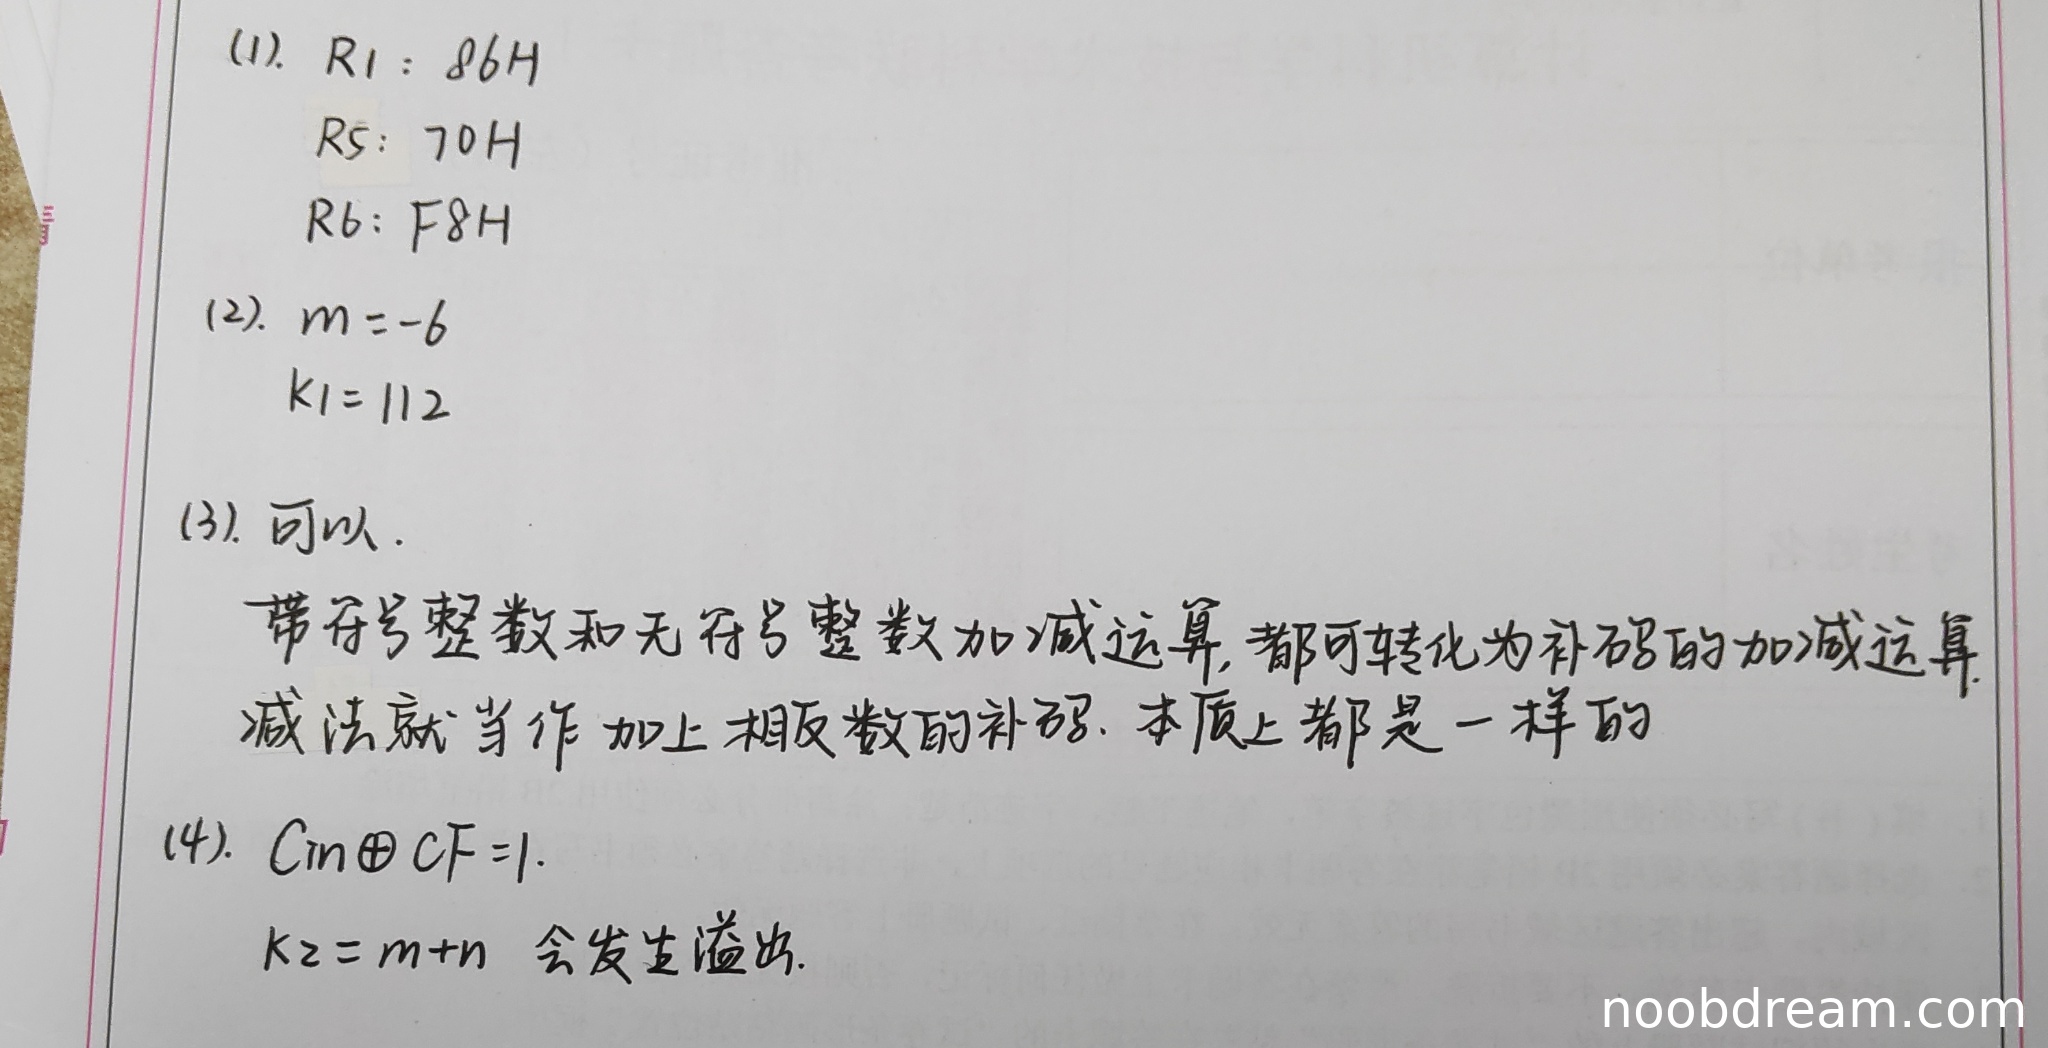 (1). R1: 86H
R5: 70H
R6: F8H
(2). m=-6
k1=112
(3). 可以.
带符号整数和无符号整数加减运算, 都可转化为补码的加减运算.
减法就当作加上相反数的补码. 本质上都是一样的
(4). Cin⊕CF=1.
k2=m+n 会发生溢出.
noobdream.com